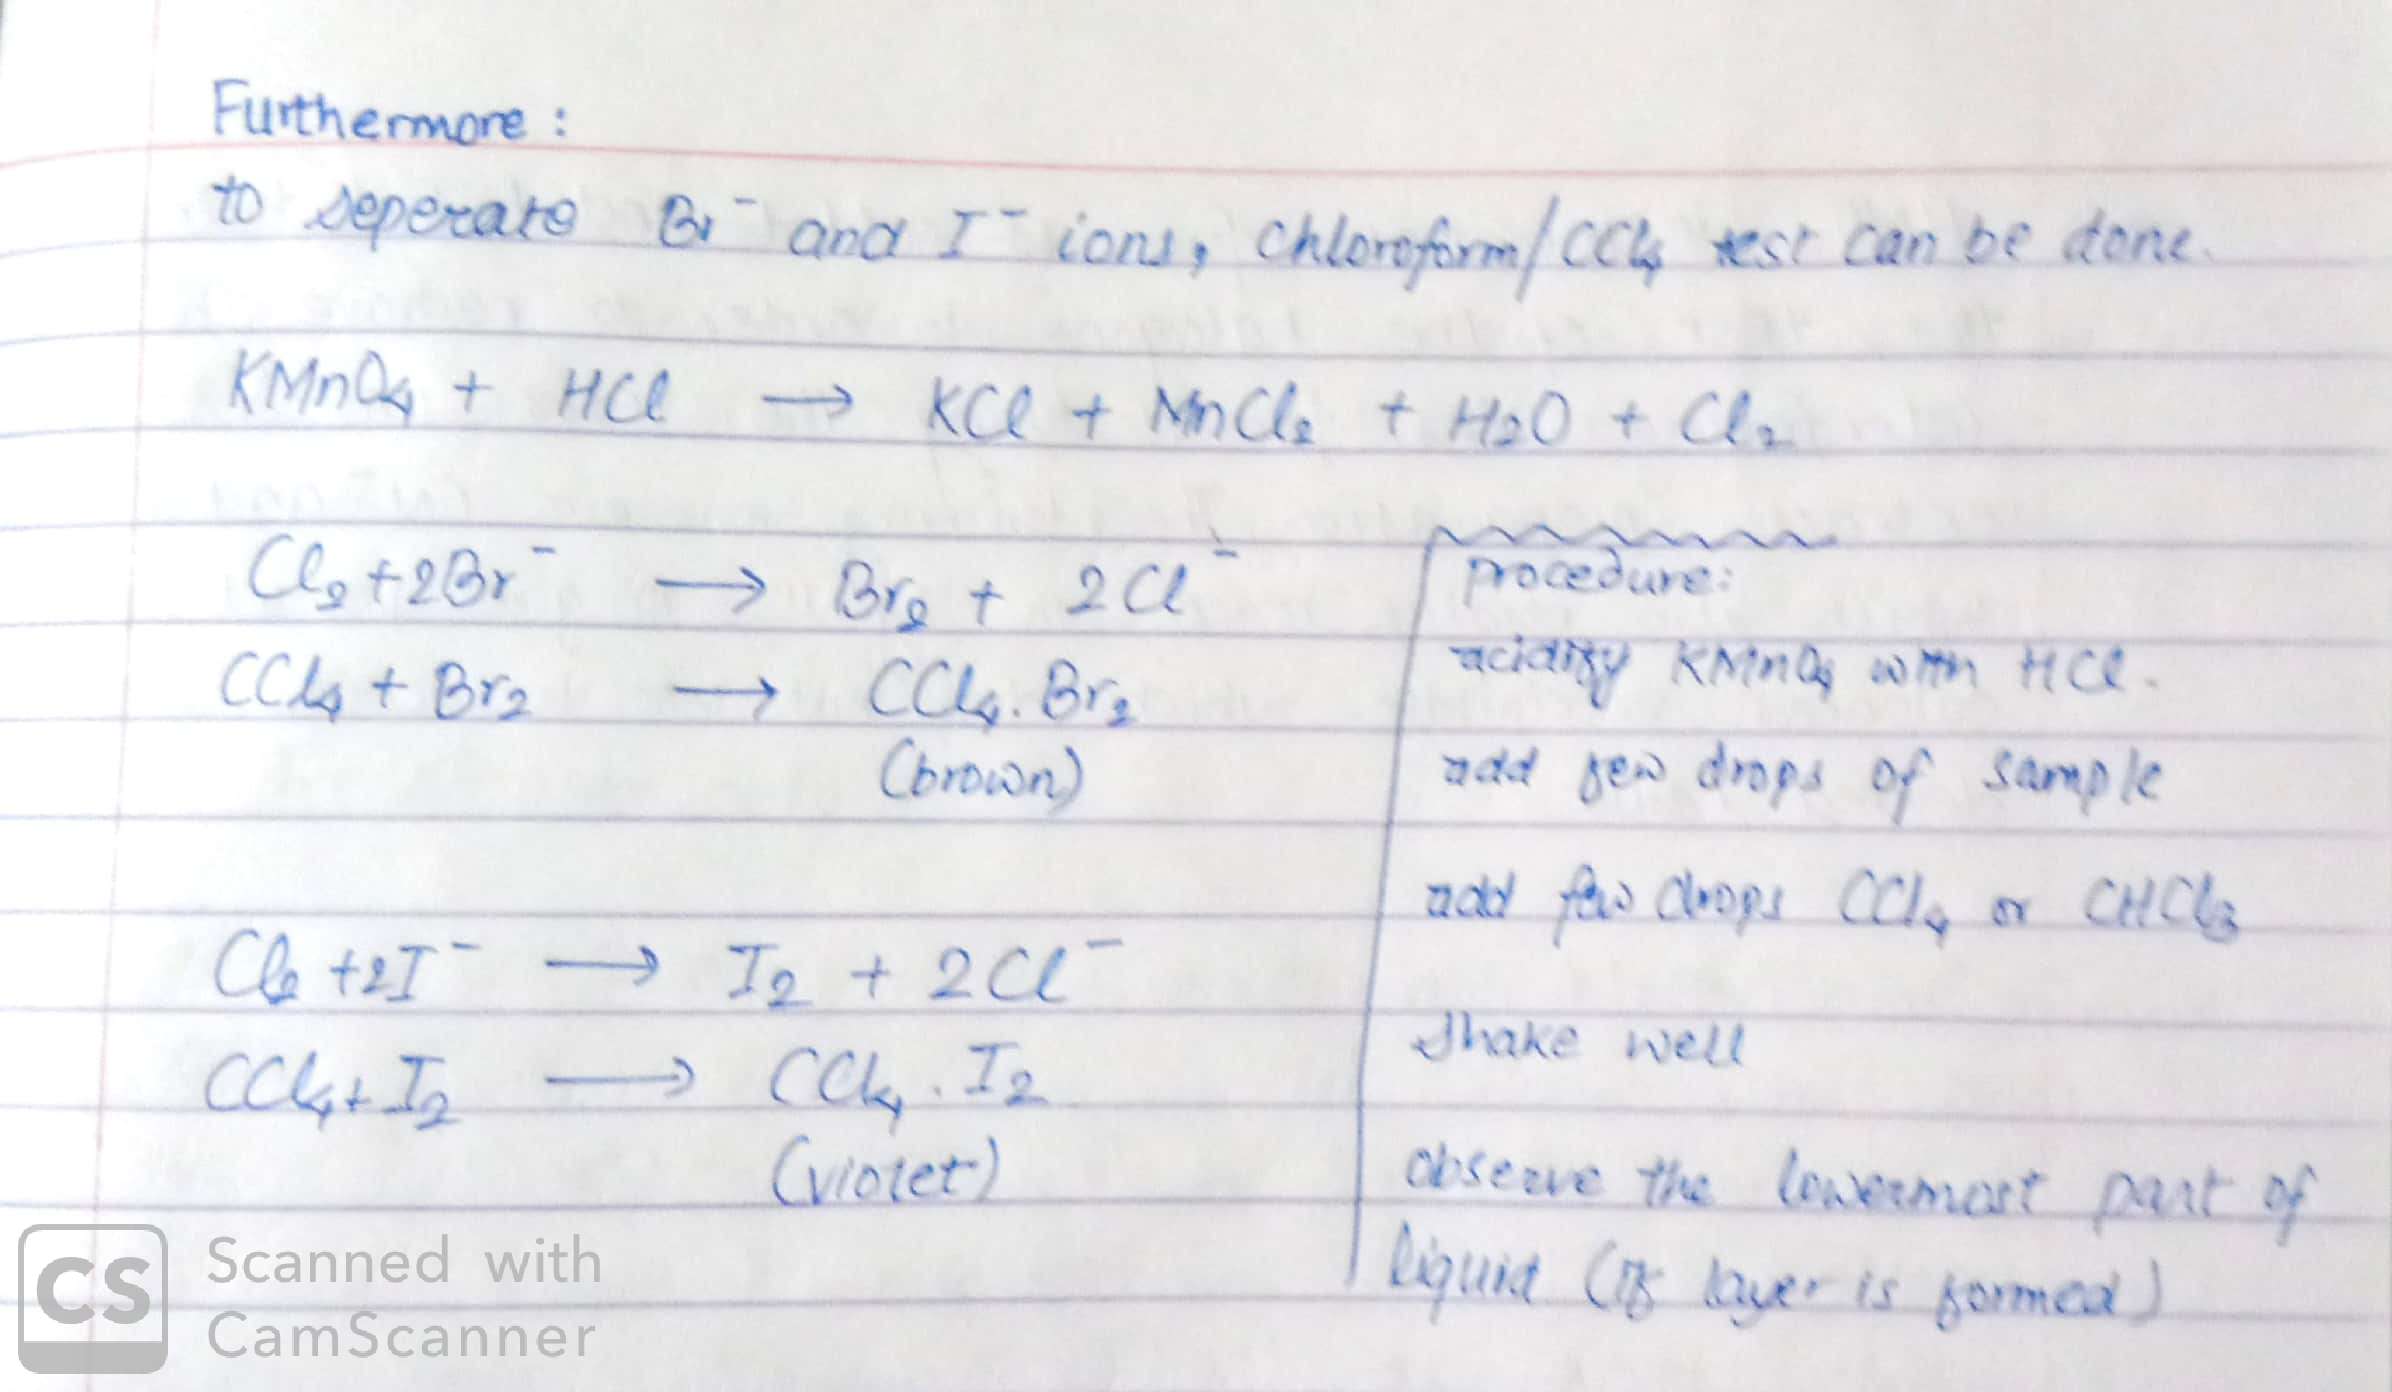 Furthermore :
to seperate Br⁻ and I⁻ ions, chloroform/CCl₄ test can be done.
KMnO₄ + HCl → KCl + MnCl₂ + H₂O + Cl₂
Cl₂ + 2Br⁻ → Br₂ + 2Cl⁻
CCl₄ + Br₂ → CCl₄. Br₂
(brown)
Cl₂ + 2I⁻ → I₂ + 2Cl⁻
CCl₄ + I₂ → CCl₄ . I₂
(violet)
procedure:
acidify KMnO₄ with HCl.
add few drops of sample
add few drops CCl₄ or CHCl₃
shake well
observe the lowermost part of
liquid (if layer is formed)
CS
Scanned with
CamScanner